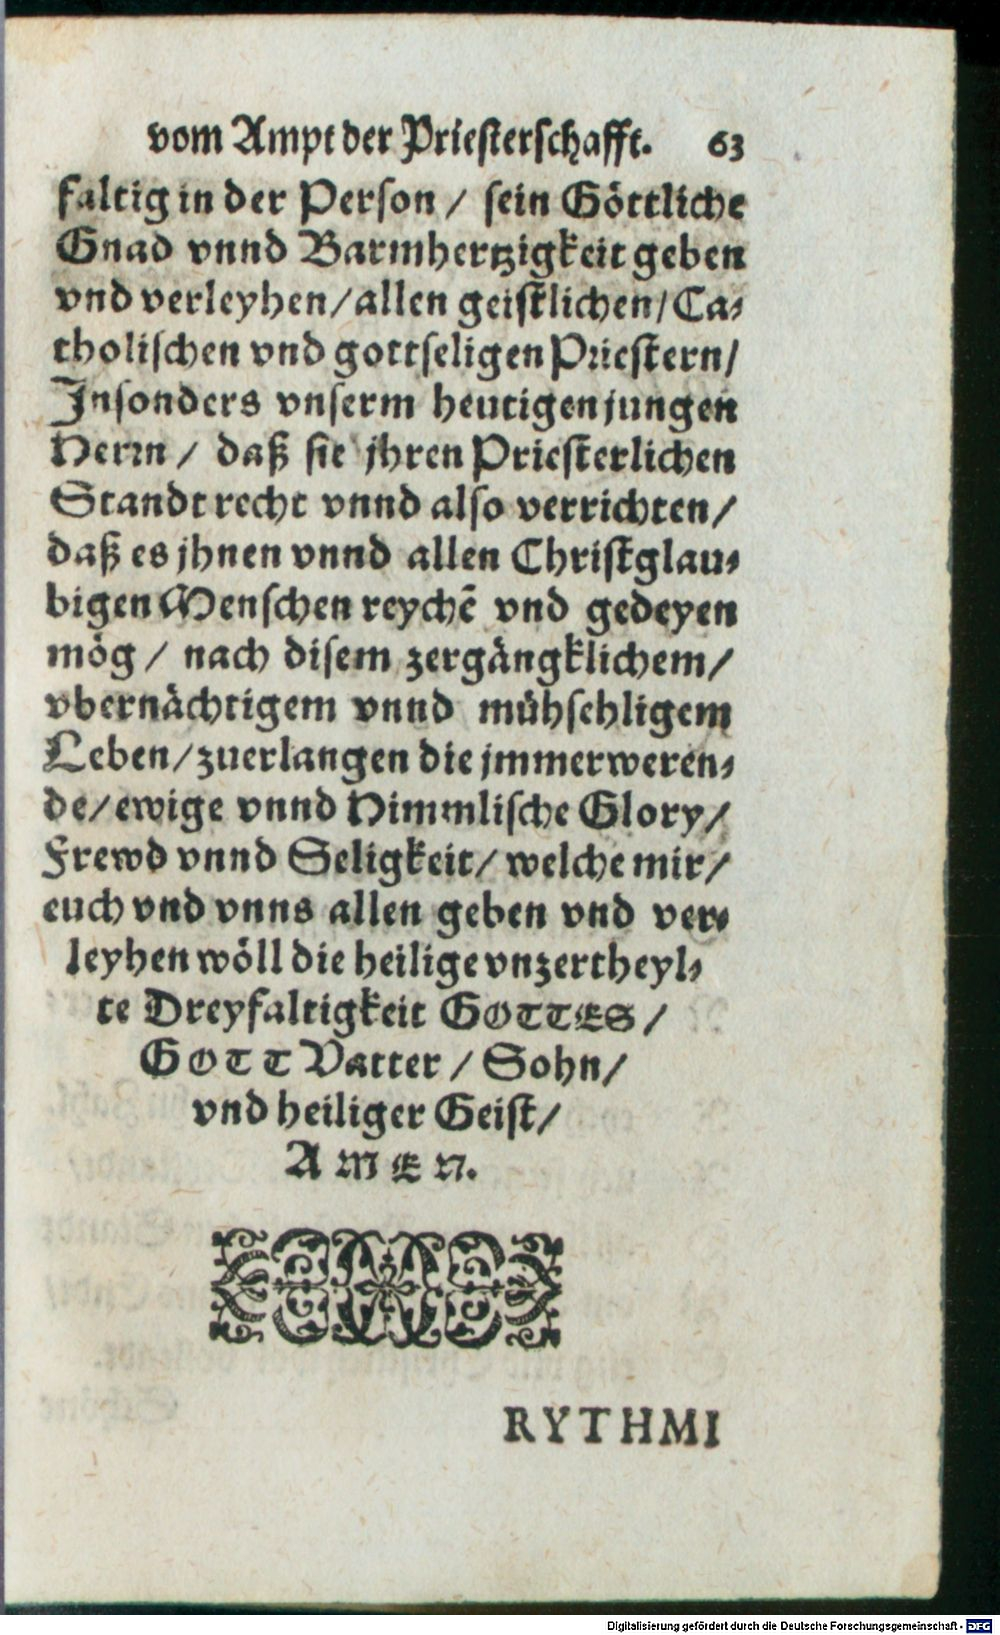 vom Ampt der Priesterschafft. 63
faltig in der Person / sein Göttliche
Gnad vnnd Barmhertzigkeit geben
vnd verleyhen / allen geistlichen / Ca-
tholischen vnd gottseligen Priestern /
Insonders vnserm heutigen jungen
Herrn / daß sie jhren Priesterlichen
Standt recht vnnd also verrichten /
daß es jhnen vnnd allen Christglau-
bigen Menschen reychē vnd gedeyen
mög / nach disem zergängklichem /
vbernächtigem vnnd mühsehligem
Leben / zuerlangen die jmmerweren-
de / ewige vnnd Himmlische Glory /
Frewd vnnd Seligkeit / welche mir /
euch vnd vnns allen geben vnd ver-
leyhen wöll die heilige vnzertheyl-
te Dreyfaltigkeit GOTTES /
GOTT Vatter / Sohn /
vnd heiliger Geist /
AMEN.
RYTHMI
Digitalisierung gefördert durch die Deutsche Forschungsgemeinschaft - DFG